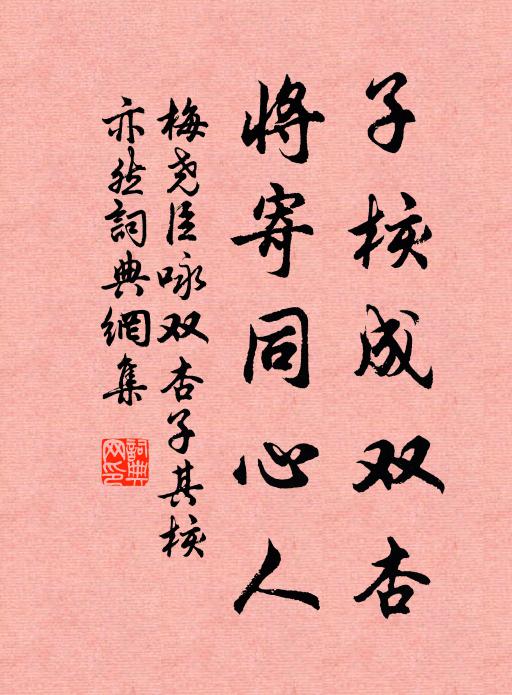 子核成双杏
将寄同心人
梅尧臣咏双杏子其核
亦然詞典網集
詞典
网印